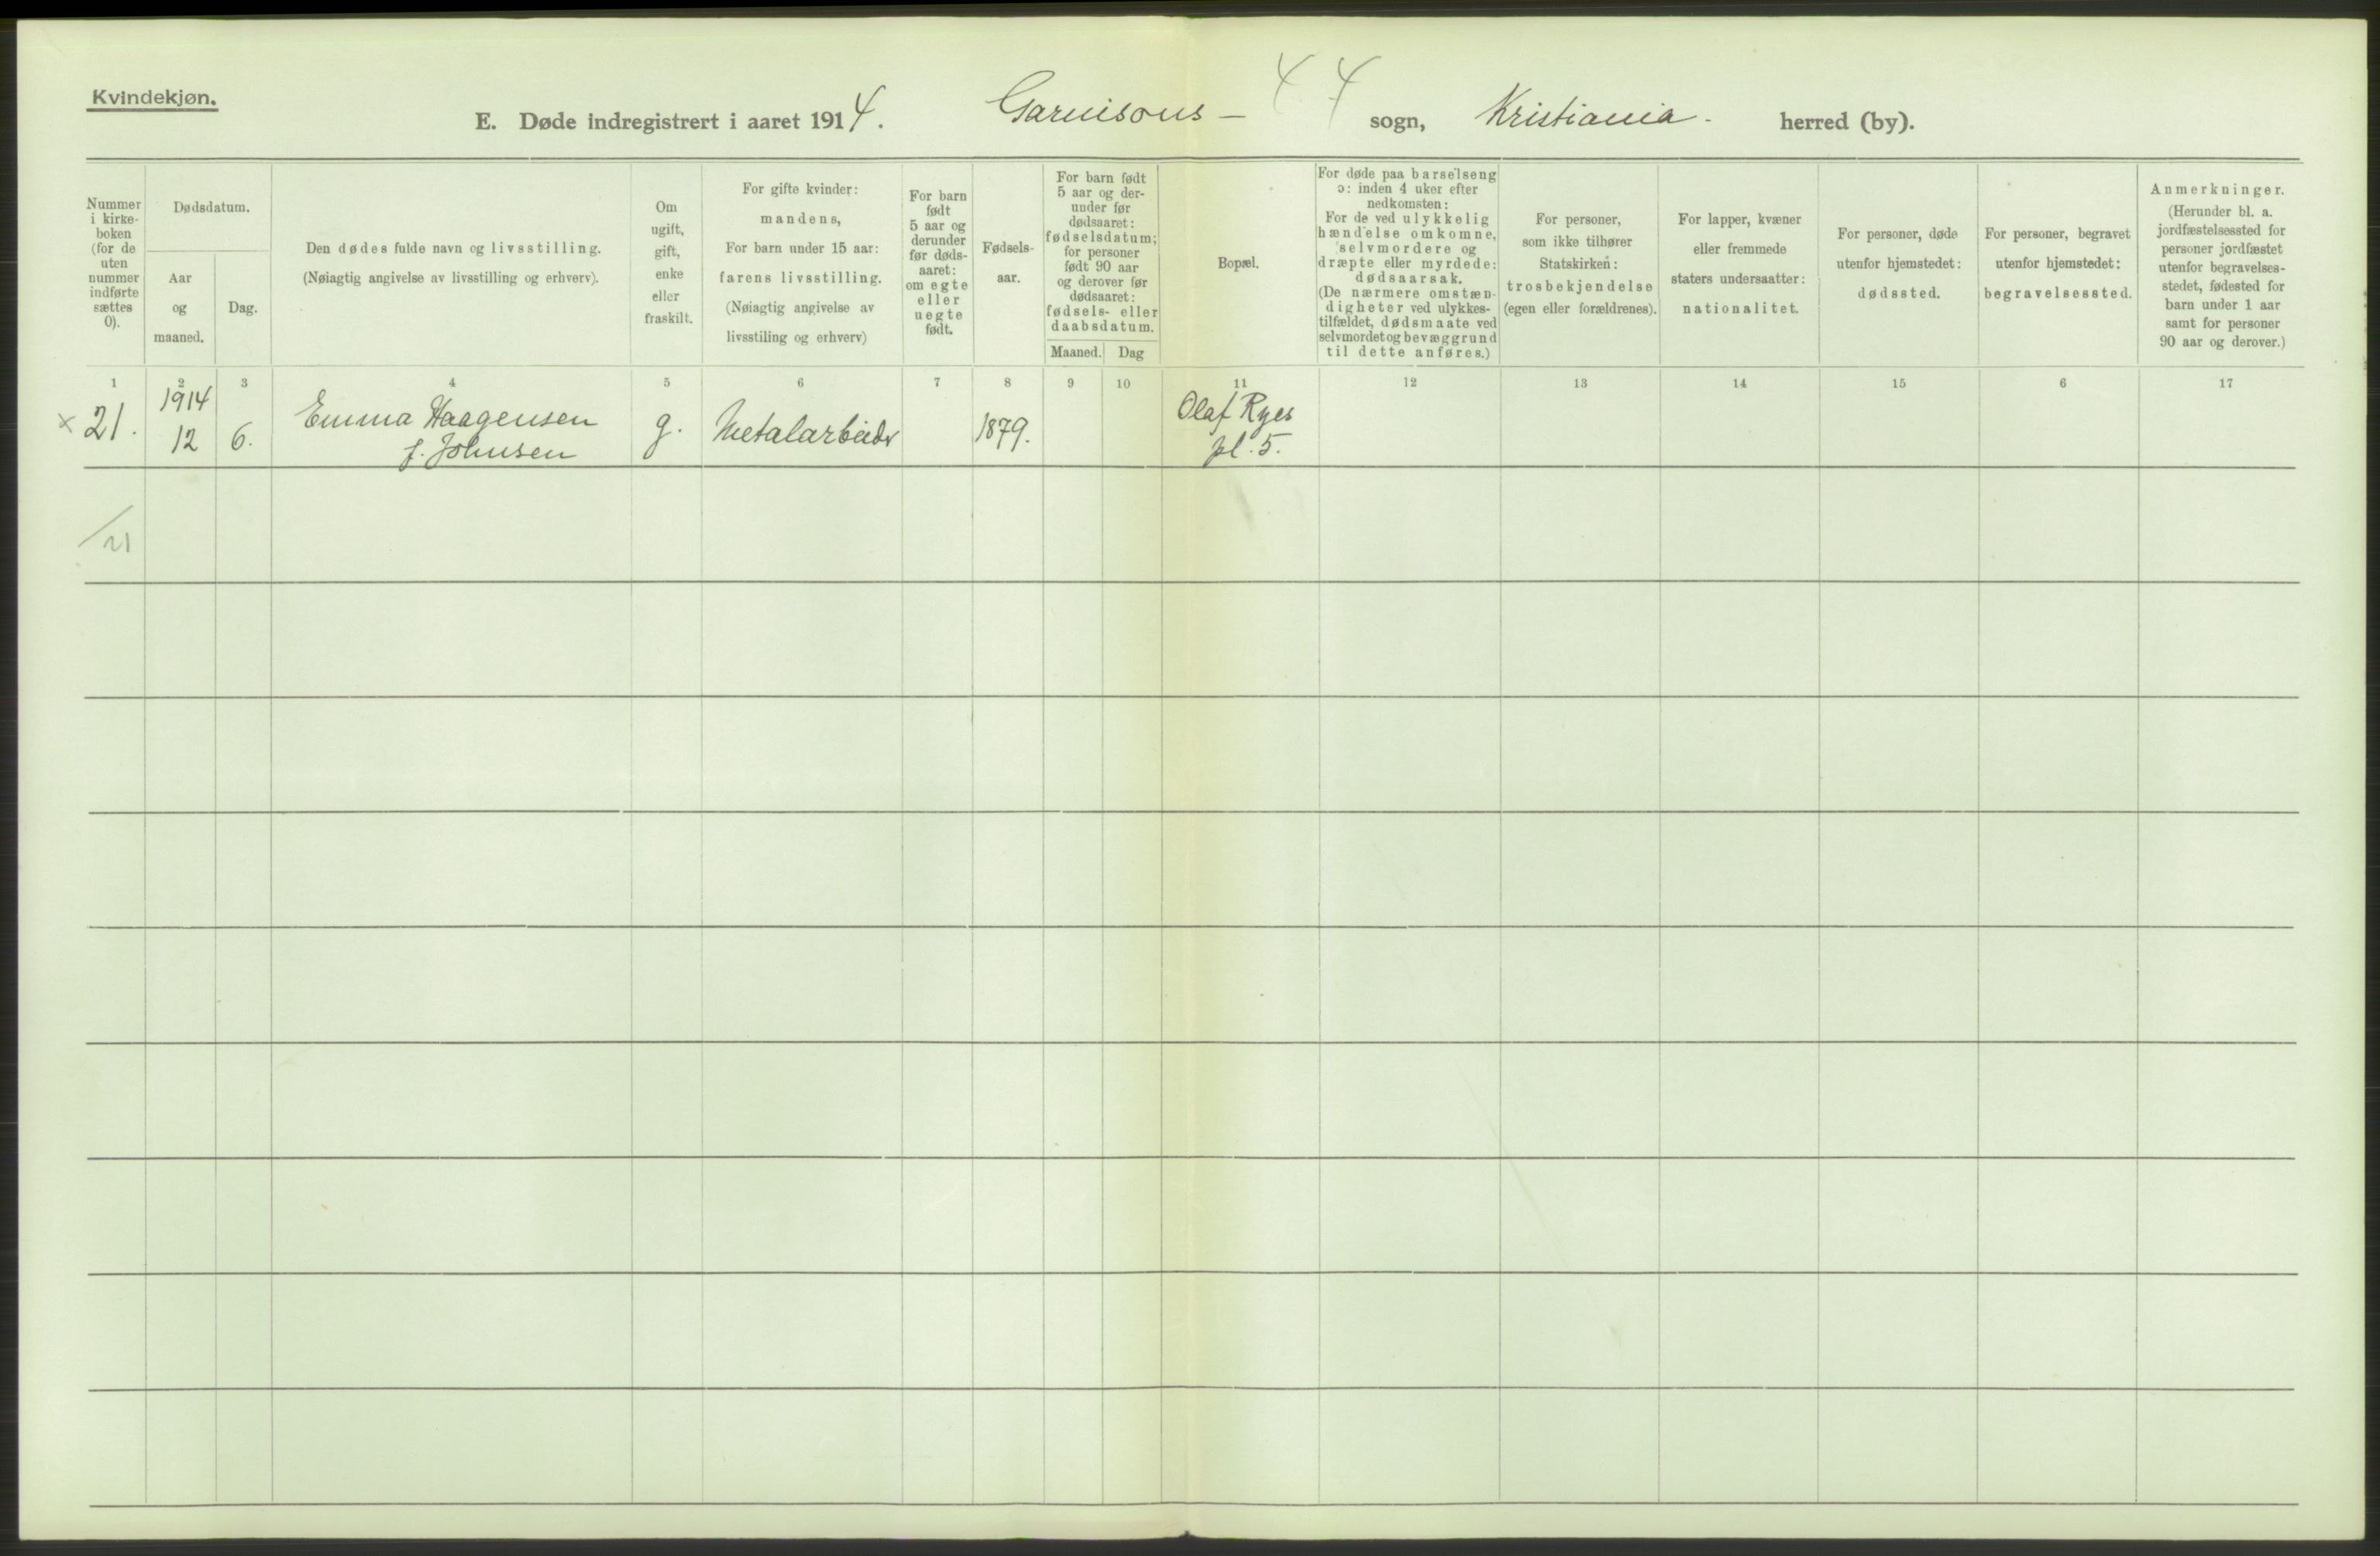 Kvindekjøn.
E. Døde indregistrert i aaret 1914. Garnisons - 44 sogn, Kristiania. herred (by).
Nummer
i kirke-
boken
(for de
uten
nummer
indførte
sættes
0).
Dødsdatum.
Aar
og
maaned.
Dag.
Den dødes fulde navn og livsstilling.
(Nøiagtig angivelse av livsstilling og erhverv).
Om
ugift,
gift,
enke
eller
fraskilt.
For gifte kvinder:
mandens,
For barn under 15 aar:
farens livsstilling.
(Nøiagtig angivelse av
livsstiling og erhverv)
For barn
født
5 aar og
derunder
før døds-
aaret:
om egte
eller
uegte
født.
Fødsels-
aar.
For barn født
5 aar og der-
under før
dødsaaret:
fødselsdatum;
for personer
født 90 aar
og derover før
dødsaaret:
fødsels- eller
daabsdatum.
Maaned. Dag
Bopæl.
For døde paa barselseng
ɔ: inden 4 uker efter
nedkomsten:
For de ved ulykkelig
hændelse omkomne,
selvmordere og
dræpte eller myrdede:
dødsaarsak.
(De nærmere omstæn-
digheter ved ulykkes-
tilfældet, dødsmaate ved
selvmordet og bevæggrund
til dette anføres.)
For personer,
som ikke tilhører
Statskirken:
trosbekjendelse
(egen eller forældrenes).
For lapper, kvæner
eller fremmede
staters undersaatter:
nationalitet.
For personer, døde
utenfor hjemstedet:
dødssted.
For personer, begravet
utenfor hjemstedet:
begravelsessted.
Anmerkninger.
(Herunder bl. a.
jordfæstelsessted for
personer jordfæstet
utenfor begravelses-
stedet, fødested for
barn under 1 aar
samt for personer
90 aar og derover.)
1 2 3 4 5 6 7 8 9 10 11 12 13 14 15 6 17
1914 Olaf Ryes
x 21. 12 6. Emma Haagensen g. Metalarbeider 1879. pl. 5.
f. Johnsen
/21